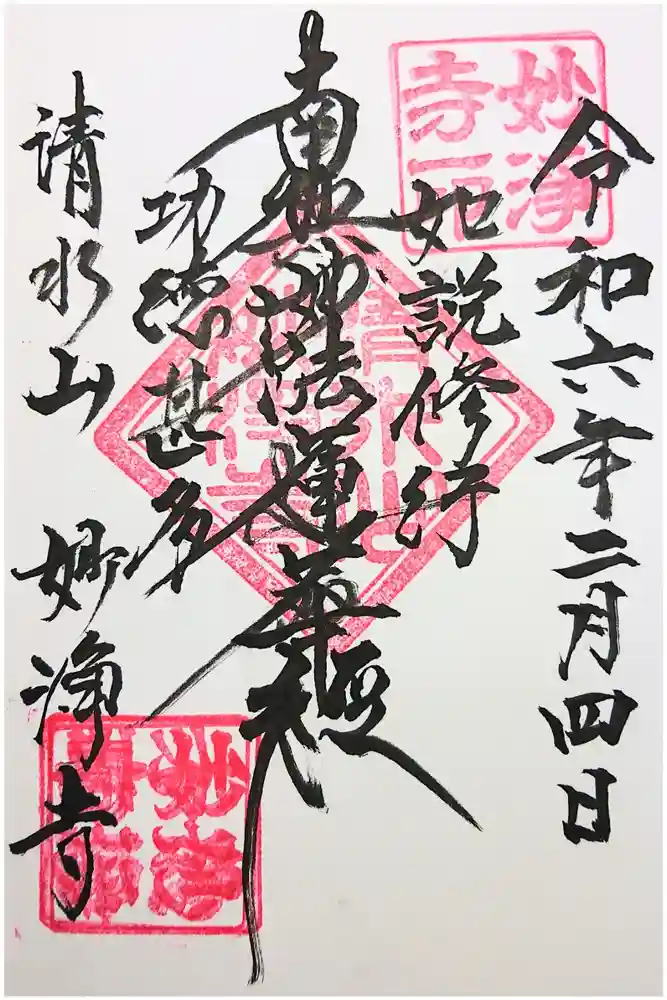 令和六年二月四日
妙浄
寺
如説修行
南無妙法蓮華経
功徳甚多
請水山 妙浄寺